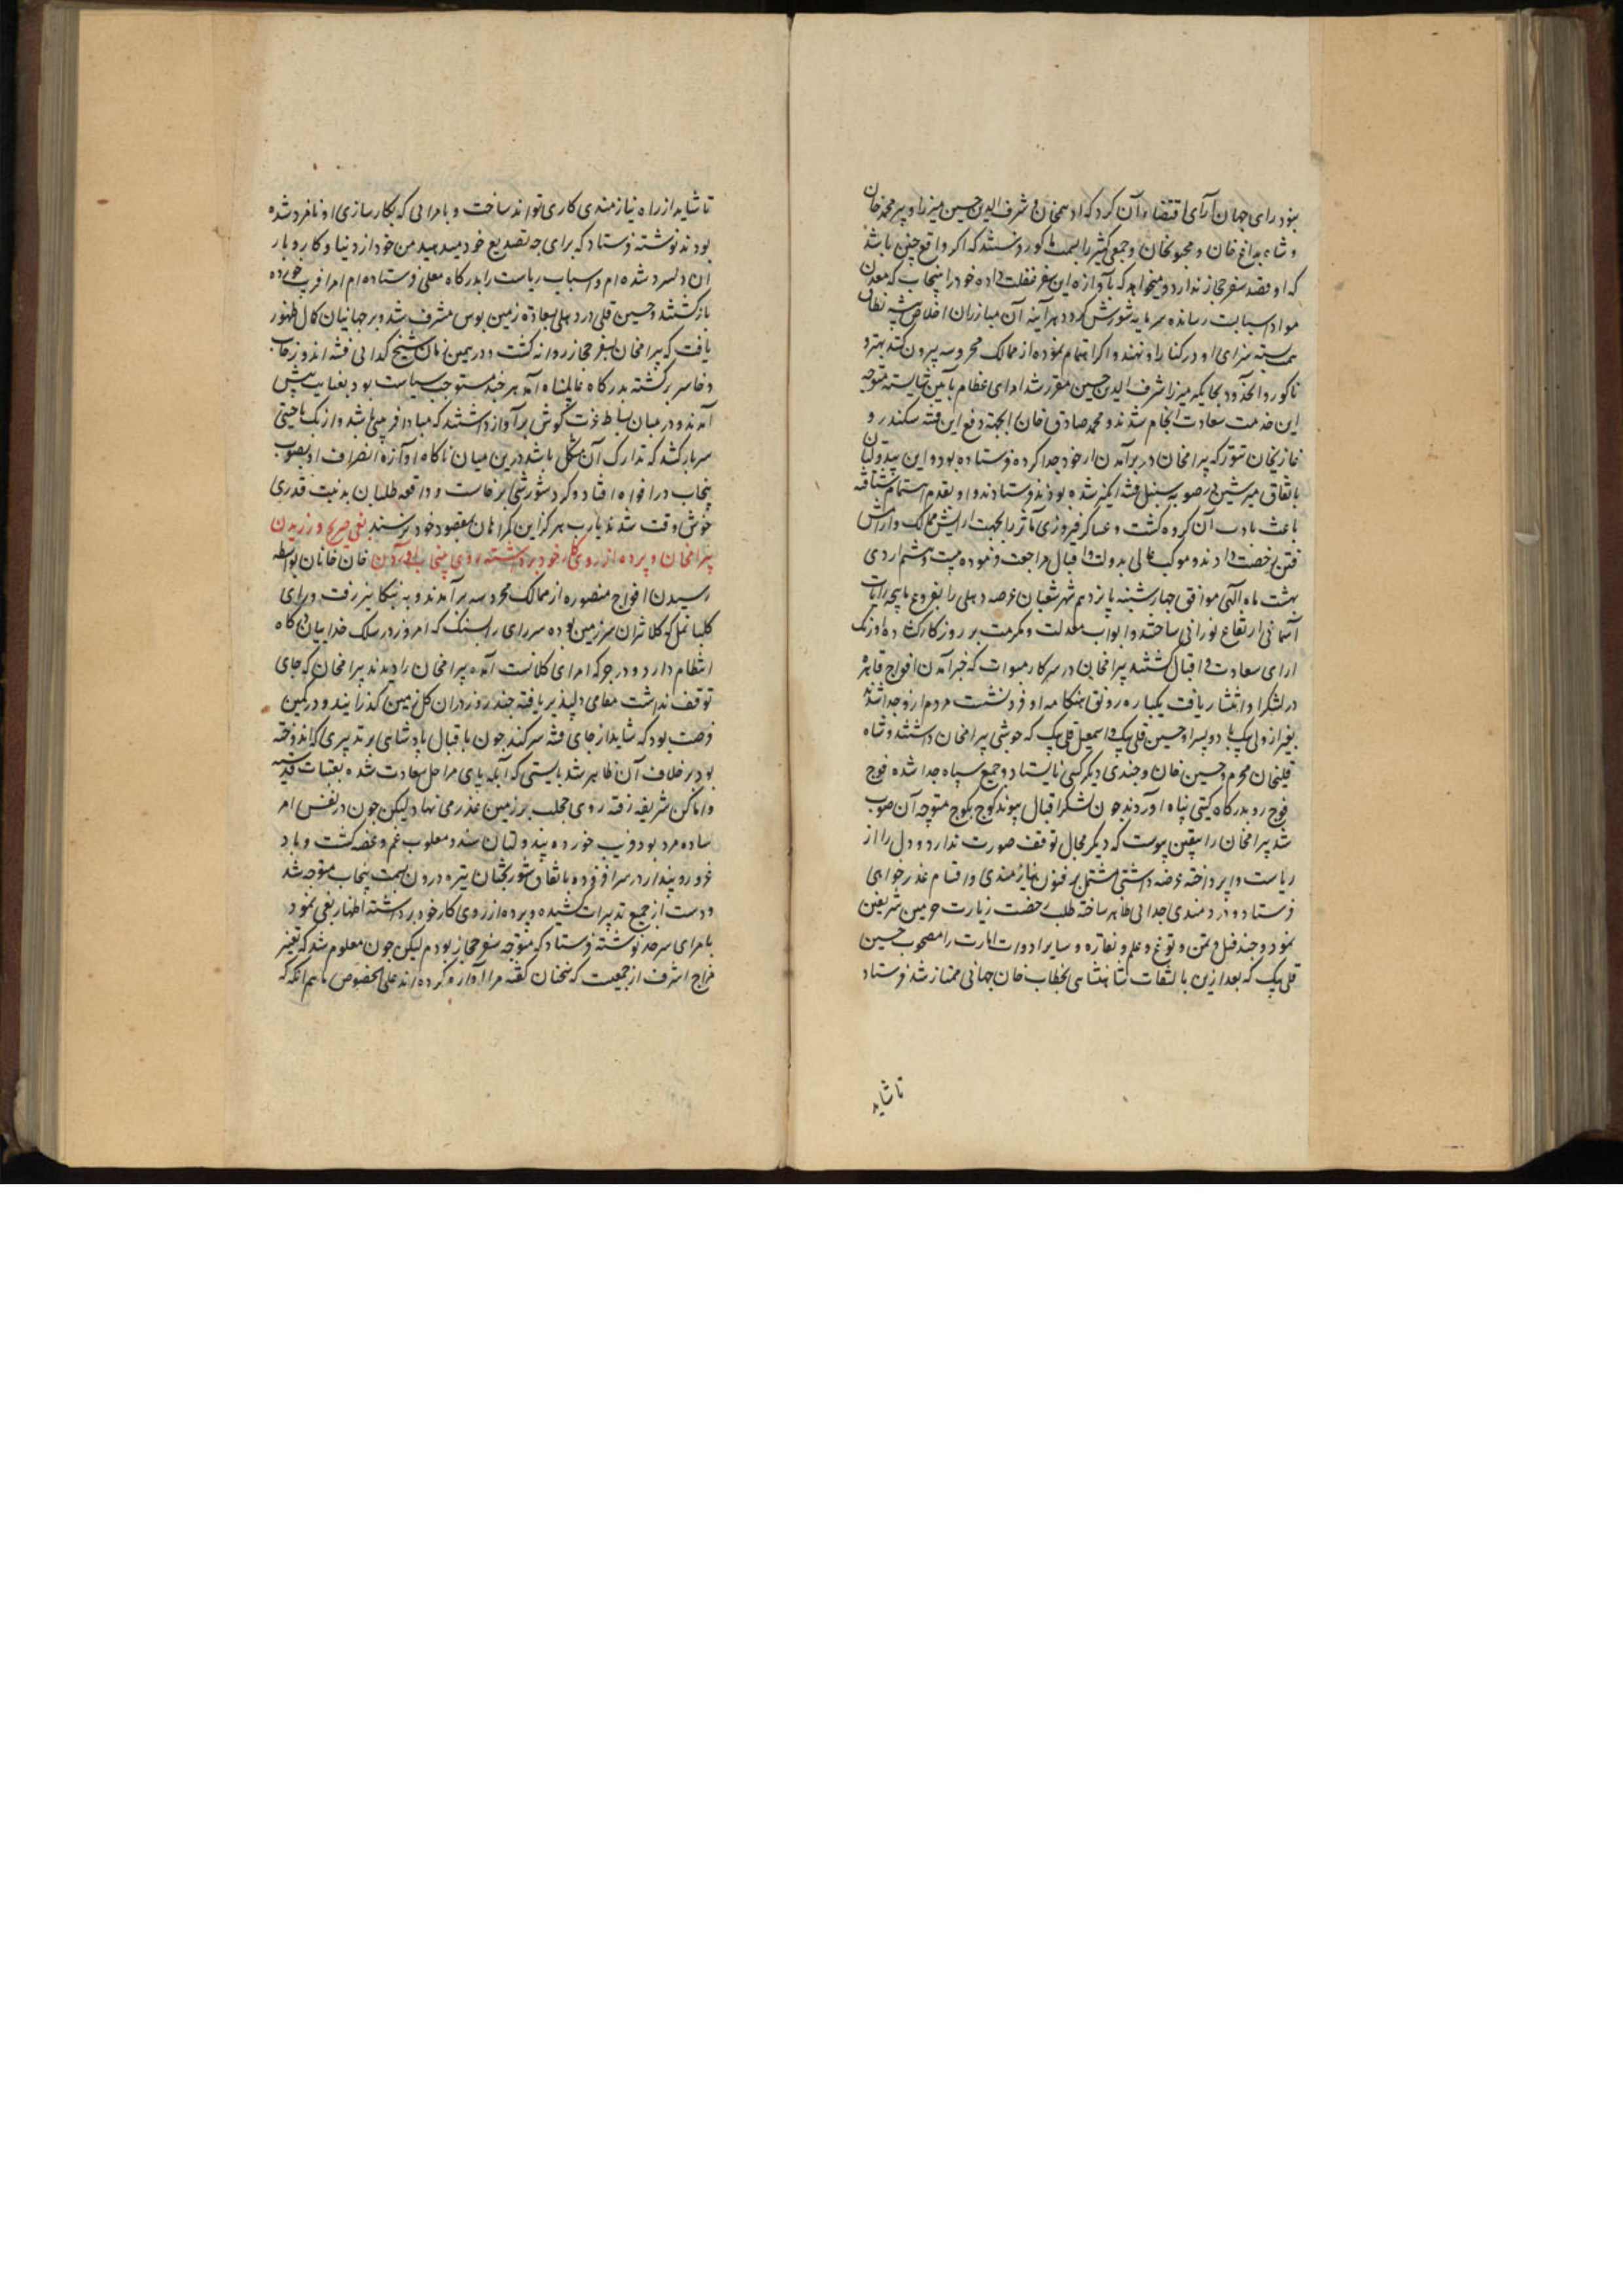 بنود رای جهان آرای اقتضاء آن کرد که ادهمخان و شرف الدین حسین میرزا و پیر محمد خان
و شاه بداغ خان و مجنونخان و جمعی کثیر را بسمت ناکور روند که اکر واقع چنین باشد
که او قصد سفر حجاز ندارد و میخواهد که بآوازه این سفر غفلت داده خود را بپنجاب که معدن
مواد اسبابست رسانده سرمایه شورش کردد هرآینه آن مبارزان اخلاص پیشه نطاق
همت بسته سزای او در کنار او نهند و اکرا تمام نموده از ممالک محروسه بیرون کنند بهتر و
ناکور و آنحدود بجایکیر میرزا شرف الدین حسین مقرر شد امرای عظام بآیین شایسته متوجه
این خدمت سعادت انجام شدند و محمد صادق خان را بجهة دفع این فتنه سکندر و
غازیخان تنور که بیرامخان در برآمدن از خود جدا کرده فرستاده بود و این بیدولتان
باتفاق میر شین در صوبه سنبل فتنه انکیز شده بودند فرستادند و او بقدم اهتمام شتافته
باعث تادیب آن کروه کشت و عساکر فیروزی مآثر را بجهت آرایش ممالک و آرامش
فتن رخصت دادند و موکب عالی بدولت و اقبال مراجعت فرموده بیست و هشتم اردی
بهشت ماه الهی موافق چهارشنبه پانزدهم شهر شعبان عرصه دهلی را بفروغ ماهچه رایات
آسمانی ارتفاع نورانی ساختند و ابواب معدلت و مکرمت بر روزکار کشاده اورنک
آرای سعادت و اقبال کشتند بیرامخان در سرکار میوات که خبر آمدن افواج قاهره
در لشکر او انتشار یافت یکباره رونق هنکامه او فرو نشست مردم از و جدا شدند
بغیر از ولی بیک با دو پسر او حسین قلی بیک و اسمعیل قلی بیک که خویشی بیرامخان داشتند و شاه
قلیخان محرم و حسین خان و چندی دیکر کسی نایستاد و جمیع سپاه جدا شده فوج
فوج رو بدرکاه کیتی پناه آوردند چون لشکر اقبال پیوند کوچ بکوچ متوجه آن صوب
شد بیرامخان را بیقین پیوست که دیکر مجال توقف صورت ندارد و دل را از
ریاست واپرداخته عرضه داشتی مشتمل بر فنون نیازمندی و اقسام عذرخواهی
فرستاد و دردمندی جدایی ظاهر ساخته طلب رخصت زیارت حرمین شریفین
نمود و چند فیل و تمن و توغ و علم و نقاره و سایر ادوات امارت را مصحوب حسین
قلی بیک که بعد ازین بالتفات شاهنشاهی بخطاب خان جهانی ممتاز شد فرستاد
تا شاید
تا شاید از راه نیازمندی کاری تواند ساخت و بامرایی که بکارسازی او نامزد شده
بودند نوشته فرستاد که برای چه تصدیع خود میدهید من خود از دنیا و کار و بار
آن دلسرد شده ام و اسباب ریاست را بدرکاه معلی فرستاده ام امرا فریب خورده
بازکشتند و حسین قلی در دهلی بسعادة زمین بوس مشرف شد و بر جهانیان کمال ظهور
یافت که بیرامخان بسفر حجاز روانه کشت و در همین زمان شیخ کدایی فتنه اندوز خایب
و خاسر برکشته بدرکاه عالمپناه آمد هر چند مستوجب سیاست بود بعنایت پیش
آمدند و در میان بساط عزت کوش بر آواز داشتند که مبادا فریبی باشد و از یک ناحیتی
سر بازکشد که تدارک آن مشکل باشد درین میان ناکاه آوازه انصراف او بصوب
پنجاب در افواه افتاد و کرد شورشی برخاست و واقعه طلبان بدنیت قدری
خوش وقت شدند یارب هرکز این کمراهان بمقصود خود نرسند بغی صریح ورزیدن
بیرامخان و پرده از روی کار خود برداشته روی بپنجاب آوردن خان خانان بواسطه
رسیدن افواج منصوره از ممالک محروسه برآمدند و به بیکانیر رفت و رای
کلیانمل که کلانتر آن سرزمین بود و پسر رای رایسنک که امروز در سلک فداییان درکاه
انتظام دارد و در جرکه امرای کلانست آمده بیرامخان را دیدند بیرامخان که جای
توقف نداشت مقامی دلپذیر یافته چند روز در آن کل زمین کذرانید و در کمین
فرصت بود که شاید از جای فتنه سر کند چون باقبال پادشاهی هر تدبیری که اندوخته
بود بر خلاف آن ظاهر شد بایستی که آبله پای مراحل سعادت شده بعتبات قدسیه
و اماکن شریفه رفته روی خجلت بر زمین عذر می نهاد لیکن چون در نفس امر
ساده مرد بود فریب خورده بیدولتان شد و مغلوب غم و غصه کشت و باد
غرور و پندار در سر افزوده باتفاق شوربختان تیره درون بسمت پنجاب متوجه شد
و دست از جمیع تدبیرات کشیده و پرده از روی کار خود برداشته اظهار بغی نمود
بامرای سرحد نوشته فرستاد که متوجه سفر حجاز بودم لیکن چون معلوم شد که تغییر
مزاج اشرف از جمعیت که سخنان کفته مرا آواره کرده اند علی الخصوص ماهم انکه که